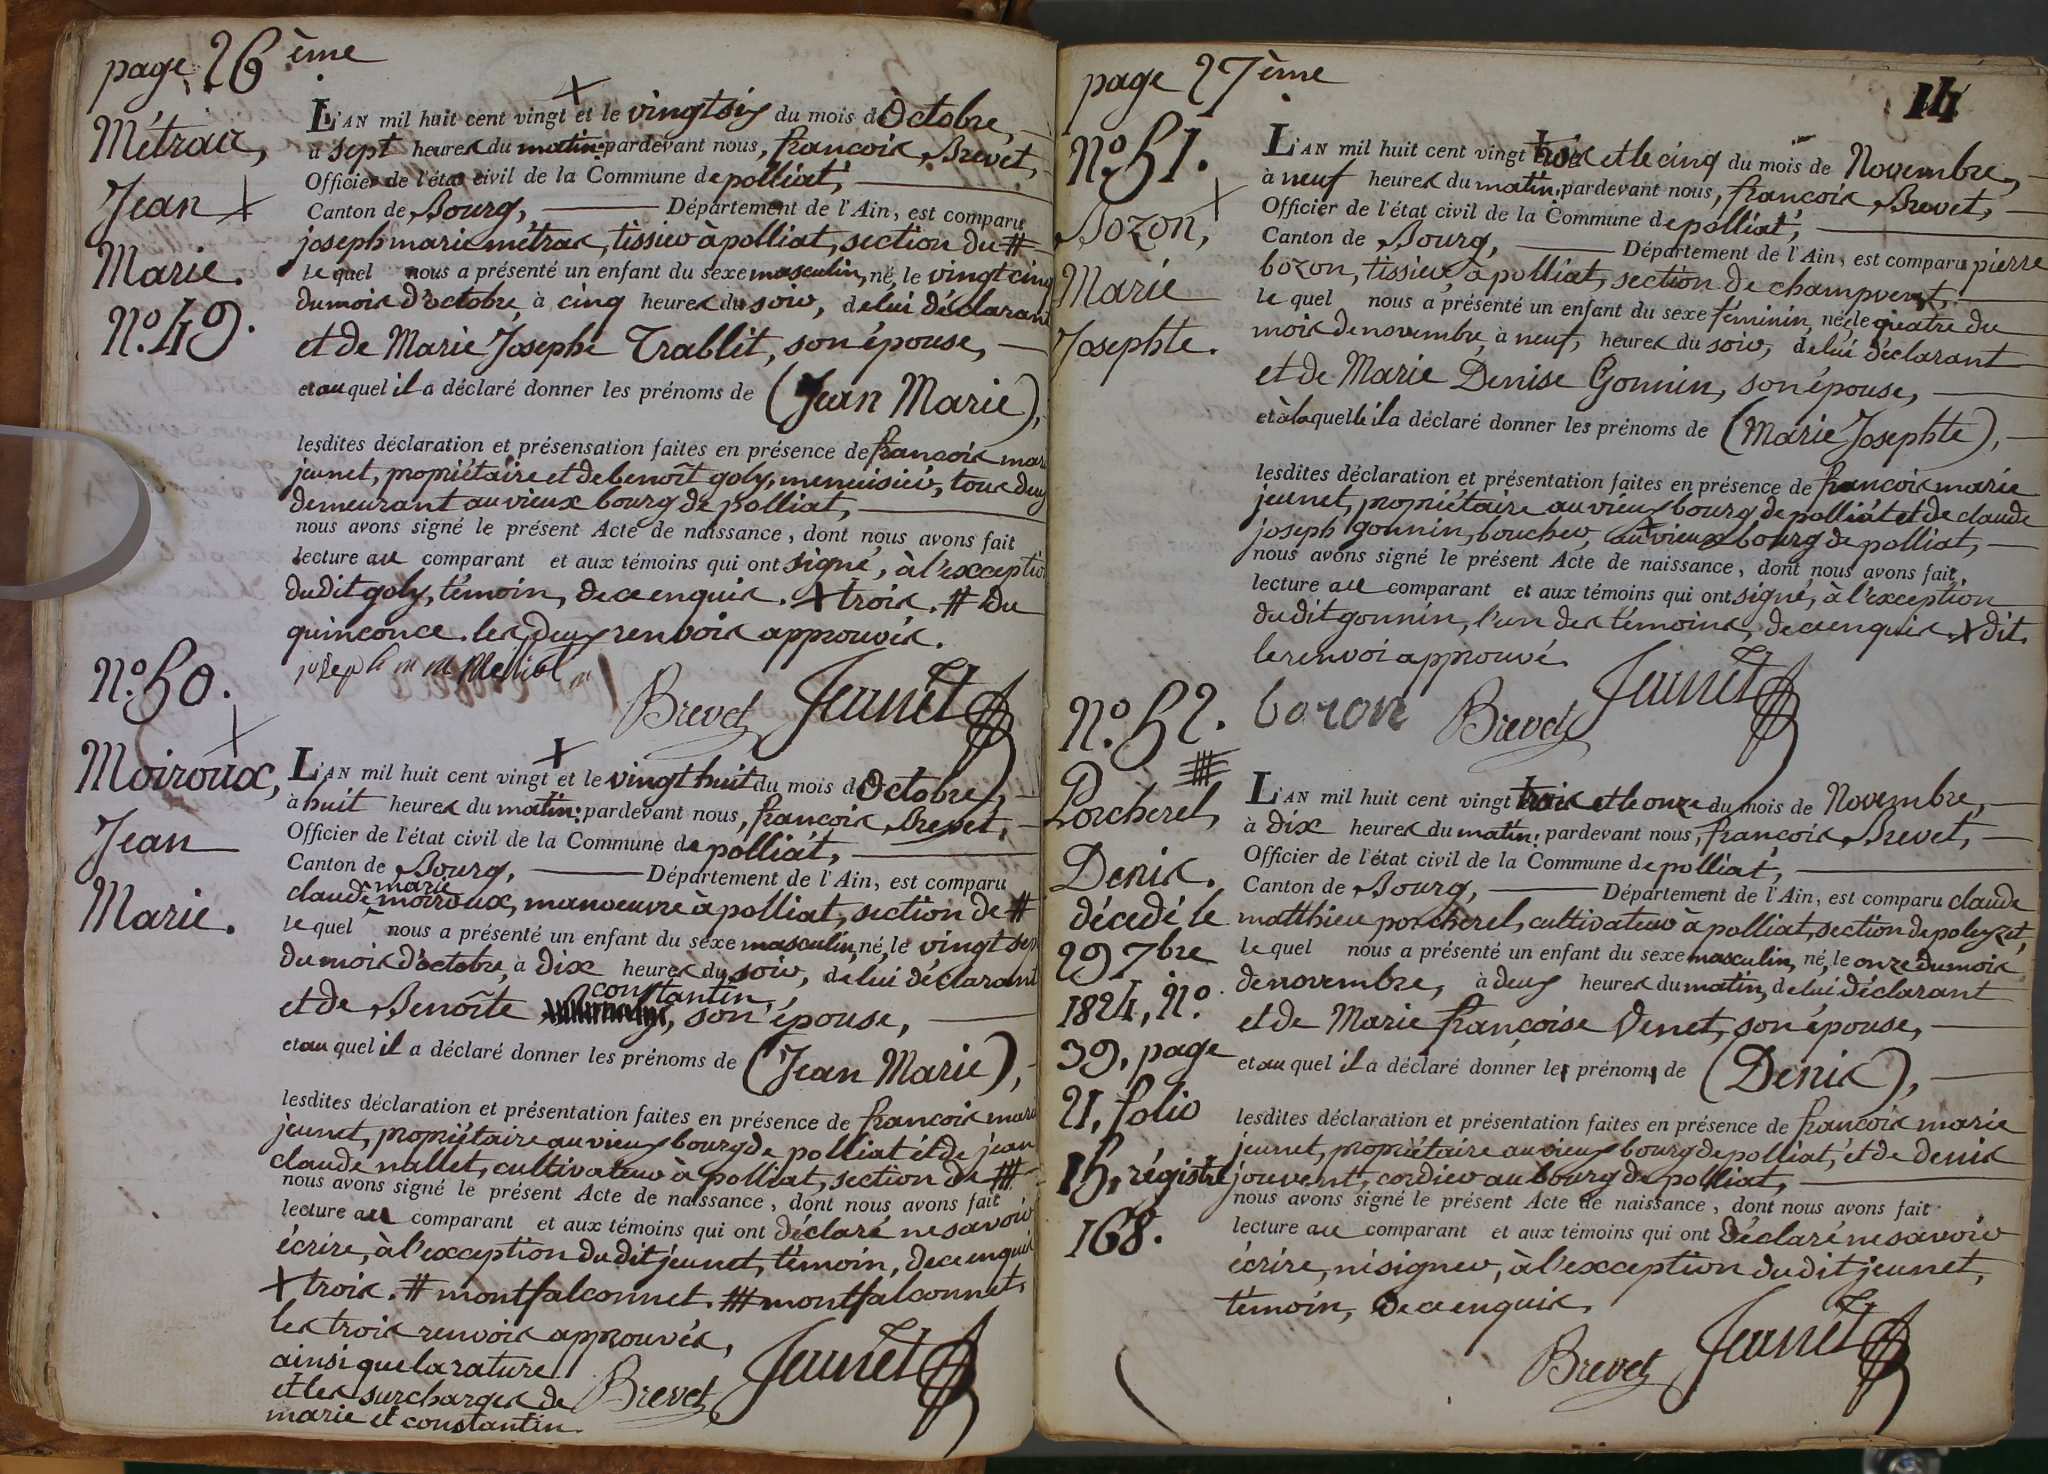 page 26ème
Métrar,
Jean
Marie.
N.° 49.
L'AN mil huit cent vingt + et le vingt six du mois d'Octobre,
à sept heures du matin; pardevant nous, françois Brevet,
Officier de l'état civil de la Commune de polliat,
Canton de Bourg, Département de l'Ain, est comparu
joseph marie métras, tissier à polliat, section du #
le quel nous a présenté un enfant du sexe masculin, né, le vingt cinq
du mois d'octobre, à cinq heures du soir, de lui déclarant
et de Marie Josephe Trablit, son épouse,
et au quel il a déclaré donner les prénoms de (Jean Marie),
lesdites déclaration et présensation faites en présence de françois marie
jeunet, propriétaire et de benoît goly, menuisier, tous deux
demeurant au vieux bourg de polliat,
nous avons signé le présent Acte de naissance, dont nous avons fait
lecture au comparant et aux témoins qui ont signé, à l'exception
dudit goly, témoin, de ce enquis. + trois. # du
quinconce. les deux renvois approuvés.
Brevet Jeunet
N.° 50.
Moiroux,
Jean
Marie.
L'AN mil huit cent vingt + et le vingt huit du mois d'Octobre,
à huit heures du matin; pardevant nous, françois Brevet,
Officier de l'état civil de la Commune de polliat,
Canton de Bourg, Département de l'Ain, est comparu
marie
claude moiroux, manoeuvre à polliat, section de #
le quel nous a présenté un enfant du sexe masculin, né, le vingt sept
du mois d'octobre, à dix heures du soir, de lui déclarant
constantin,
et de Benoîte son épouse,
et au quel il a déclaré donner les prénoms de (Jean Marie),
lesdites déclaration et présentation faites en présence de françois marie
jeunet, propriétaire au vieux bourg de polliat et de jean
claude nallet, cultivateur à polliat, section de ##
nous avons signé le présent Acte de naissance, dont nous avons fait
lecture au comparant et aux témoins qui ont déclaré ne savoir
écrire, à l'exception dudit jeunet, témoin, de ce enquis
+ trois. # montfalconnet. ## montfalconnet.
les trois renvois approuvés,
ainsi que la rature
et les surcharges de Brevet Jeunet
marie et constantin.
page 27ème
14
N.° 51.
Bozon,
Marie
Josephte.
L'AN mil huit cent vingt trois et le cinq du mois de Novembre,
à neuf heures du matin; pardevant nous, françois Brevet,
Officier de l'état civil de la Commune de polliat,
Canton de Bourg, Département de l'Ain, est comparu pierre
bozon, tissier, à polliat, section de champvent,
le quel nous a présenté un enfant du sexe féminin, née, le quatre du
mois de novembre, à neuf, heures du soir, de lui déclarant
et de Marie Denise Gonnin, son épouse,
et à laquelle il a déclaré donner les prénoms de (Marie Josephte),
lesdites déclaration et présentation faites en présence de françois marie
jeunet, propriétaire au vieux bourg de polliat et de claude
joseph gonnin, boucher, au + vieux bourg de polliat,
nous avons signé le présent Acte de naissance, dont nous avons fait
lecture au comparant et aux témoins qui ont signé, à l'exception
dudit gonnin, l'un des témoins, de ce enquis. + dit.
le renvoi approuvé.
bozon Brevet Jeunet
N.° 52.
Porcherel,
Denis.
décédé le
29 7bre
1824, N.°
39, page
21, folio
15, régistre
168.
L'AN mil huit cent vingt trois et le onze du mois de Novembre,
à dix heures du matin; pardevant nous, françois Brevet,
Officier de l'état civil de la Commune de polliat,
Canton de Bourg, Département de l'Ain, est comparu claude
matthieu porcherel, cultivateur à polliat, section de poleyzet,
le quel nous a présenté un enfant du sexe masculin, né, le onze du mois
de novembre, à deux heures du matin, de lui déclarant
et de Marie françoise Venet, son épouse,
et au quel il a déclaré donner les prénoms de (Denis),
lesdites déclaration et présentation faites en présence de françois marie
jeunet, propriétaire au vieux bourg de polliat, et de denis
jouvent, cordier au bourg de polliat,
nous avons signé le présent Acte de naissance, dont nous avons fait
lecture au comparant et aux témoins qui ont déclaré ne savoir
écrire, ni signer, à l'exception dudit jeunet,
témoin, de ce enquis.
Brevet Jeunet